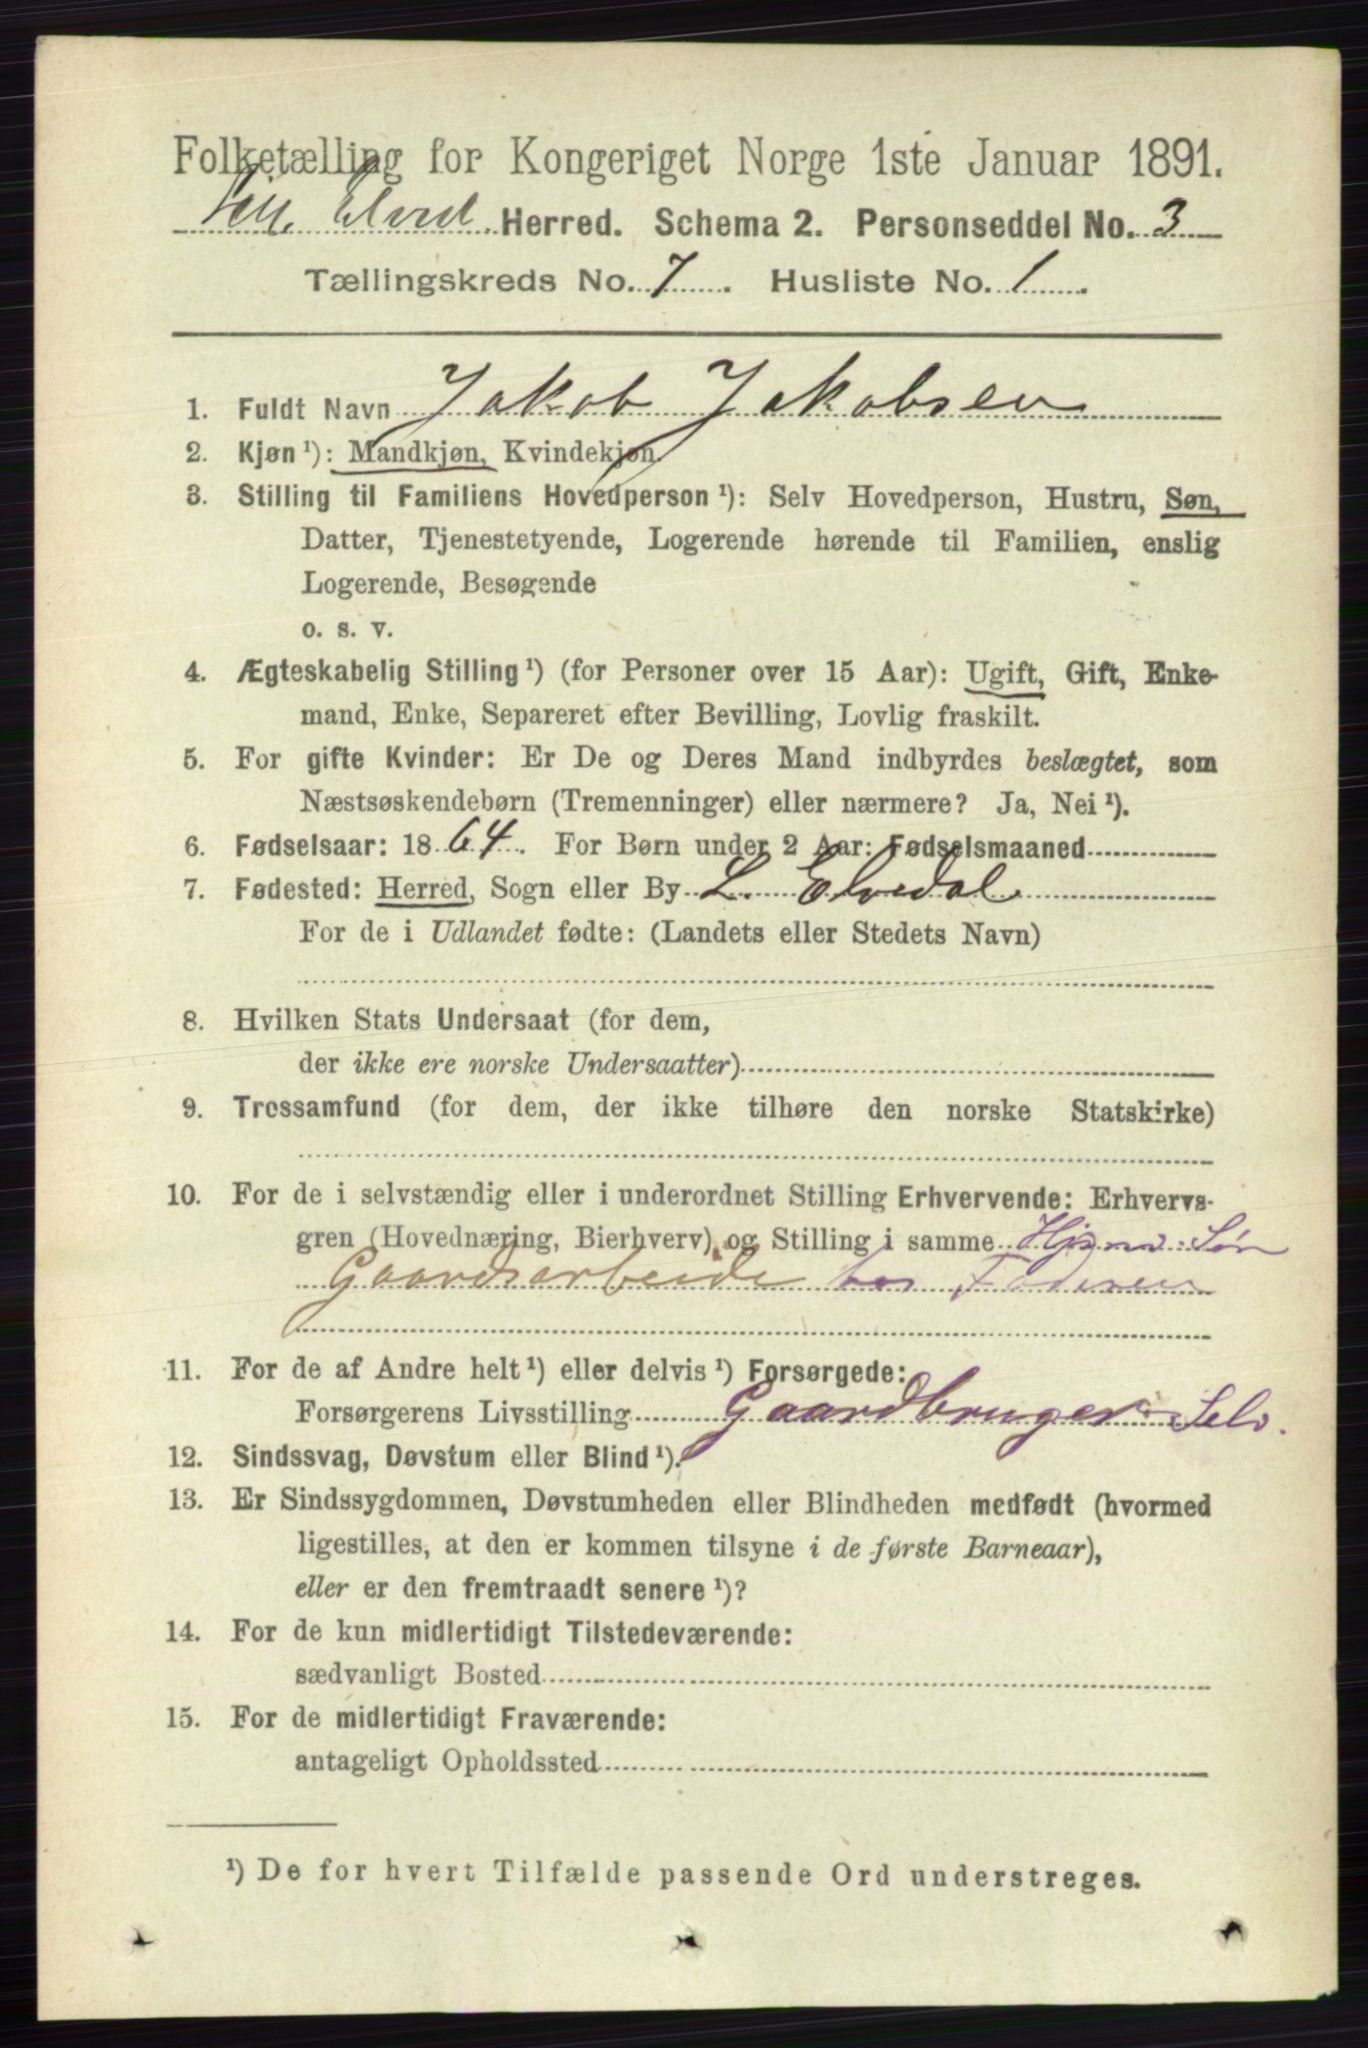 Folketælling for Kongeriget Norge 1ste Januar 1891.
Lille Elvedal. Herred. Schema 2. Personseddel No. 3
Tællingskreds No. 7. Husliste No. 1.
1. Fuldt Navn Jakob Jakobsen
2. Kjøn ¹): Mandkjøn, Kvindekjøn.
3. Stilling til Familiens Hovedperson ¹): Selv Hovedperson, Hustru, Søn,
Datter, Tjenestetyende, Logerende hørende til Familien, enslig
Logerende, Besøgende
o. s. v.
4. Ægteskabelig Stilling ¹) (for Personer over 15 Aar): Ugift, Gift, Enke-
mand, Enke, Separeret efter Bevilling, Lovlig fraskilt.
5. For gifte Kvinder: Er De og Deres Mand indbyrdes beslægtet, som
Næstsøskendebørn (Tremenninger) eller nærmere? Ja, Nei ¹).
6. Fødselsaar: 1864. For Børn under 2 Aar: Fødselsmaaned
7. Fødested: Herred, Sogn eller By L. Elvedal
For de i Udlandet fødte: (Landets eller Stedets Navn)
8. Hvilken Stats Undersaat (for dem,
der ikke ere norske Undersaatter)
9. Trossamfund (for dem, der ikke tilhøre den norske Statskirke)
10. For de i selvstændig eller i underordnet Stilling Erhvervende: Erhvervs-
gren (Hovednæring, Bierhverv) og Stilling i samme Hjemv. Søn
Gaardsarbeide hos Faderen
11. For de af Andre helt ¹) eller delvis ¹) Forsørgede:
Forsørgerens Livsstilling Gaardbruger Selv.
12. Sindssvag, Døvstum eller Blind ¹).
13. Er Sindssygdommen, Døvstumheden eller Blindheden medfødt (hvormed
ligestilles, at den er kommen tilsyne i de første Barneaar),
eller er den fremtraadt senere ¹)?
14. For de kun midlertidigt Tilstedeværende:
sædvanligt Bosted
15. For de midlertidigt Fraværende:
antageligt Opholdssted
¹) De for hvert Tilfælde passende Ord understreges.